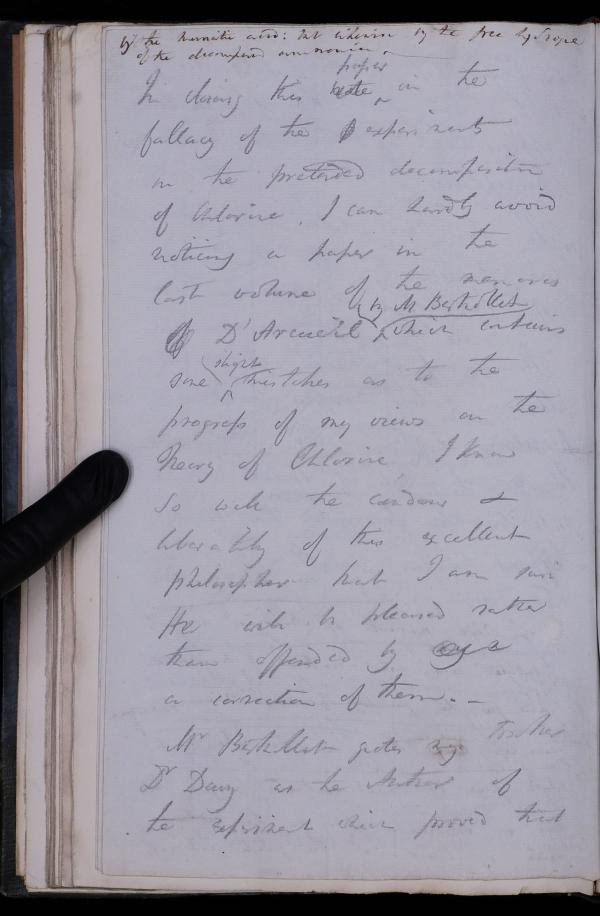 by the muriatic acid: but likewise by the free hydrogene
of the decomposed ammonia.
paper
In closing this note in the
fallacy of the experiments
on the pretended decomposition
of Chlorine, I can hardly avoid
noticing a paper in the
last volume of the memoires
by M Berthollet
of D'Arcueil which contains
slight
some mistakes as to the
progress of my views on the
theory of Chlorine, I know
so well the candour &
liberality of this excellent
philosopher that I am sure
He will be pleased rather
than offended by
a correction of them. -
Mr Berthollet quotes my brother
Dr Davy as the Author of
the experiment which proved that